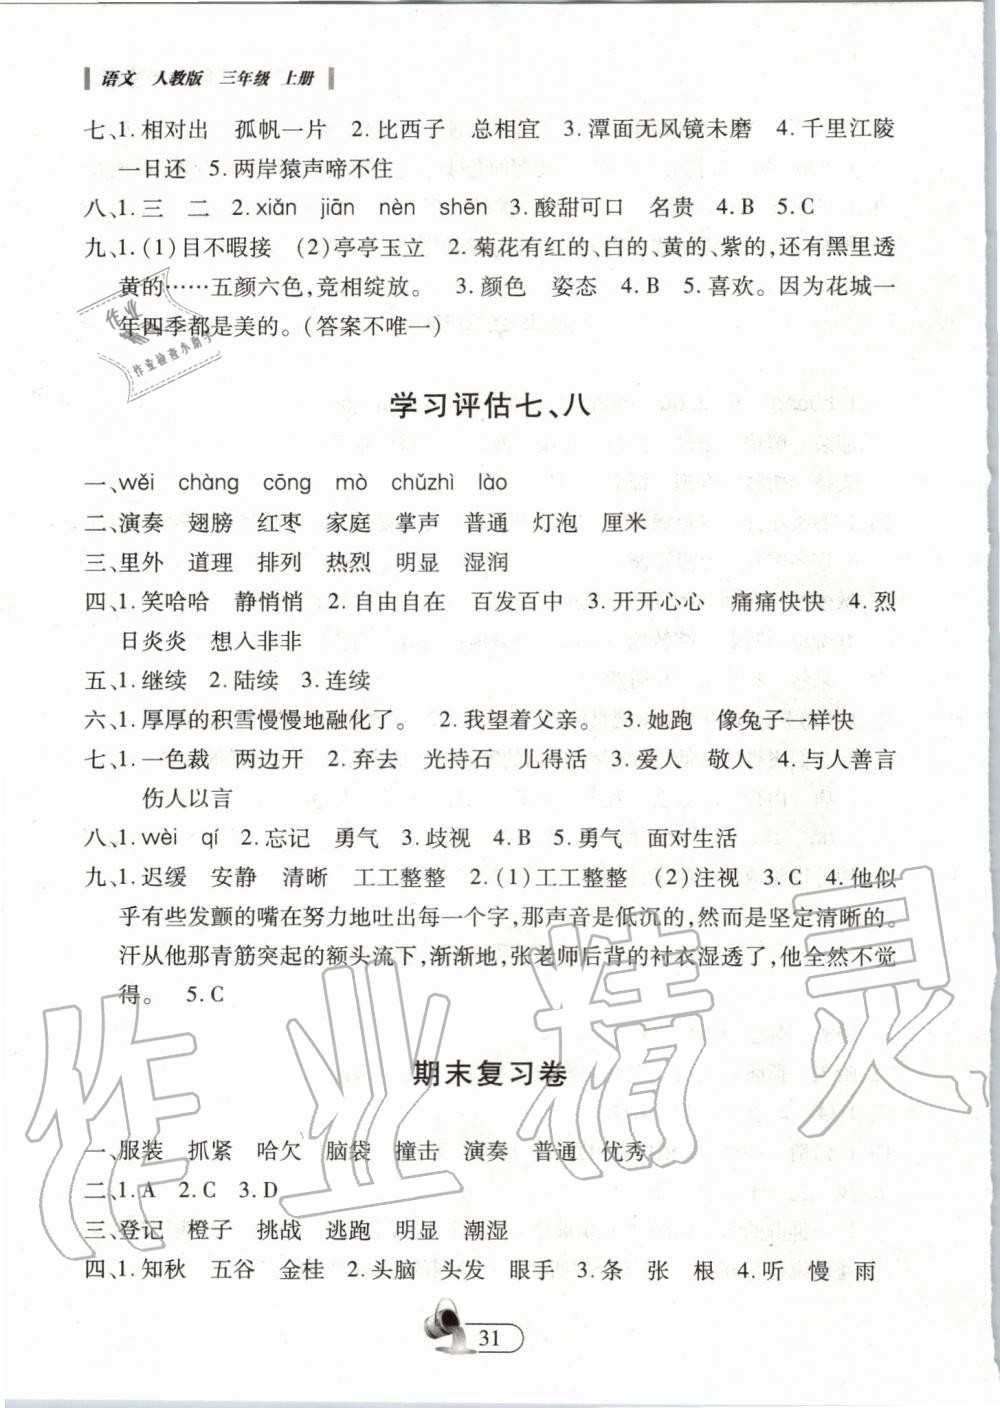 语文 人教版 三年级 上册
七、1.相对出 孤帆一片 2.比西子 总相宜 3.潭面无风镜未磨 4.千里江陵
一日还 5.两岸猿声啼不住
八、1.三 二 2.xiǎn jiān nèn shēn 3.酸甜可口 名贵 4.B 5.C
九、1.(1)目不暇接 (2)亭亭玉立 2.菊花有红的、白的、黄的、紫的,还有黑里透
黄的……五颜六色,竞相绽放。 3.颜色 姿态 4.B 5.喜欢。因为花城一
年四季都是美的。(答案不唯一)
作业
作业检查小助手
学习评估七、八
一、wěi chàng cōng mò chǔzhì lào
二、演奏 翅膀 红枣 家庭 掌声 普通 灯泡 厘米
三、里外 道理 排列 热烈 明显 湿润
四、1.笑哈哈 静悄悄 2.自由自在 百发百中 3.开开心心 痛痛快快 4.烈
日炎炎 想入非非
五、1.继续 2.陆续 3.连续
六、1.厚厚的积雪慢慢地融化了。 2.我望着父亲。 3.她跑 像兔子一样快
七、1.一色裁 两边开 2.弃去 光持石 儿得活 3.爱人 敬人 4.与人善言
伤人以言
八、1.wèi qí 2.忘记 勇气 3.歧视 4.B 5.勇气 面对生活
九、1.迟缓 安静 清晰 工工整整 2.(1)工工整整 (2)注视 3.C 4.他似
乎有些发颤的嘴在努力地吐出每一个字,那声音是低沉的,然而是坚定清晰的。
汗从他那青筋突起的额头流下,渐渐地,张老师后背的衬衣湿透了,他全然不觉
得。 5.C
作业精灵
期末复习卷
一、服装 抓紧 哈欠 脑袋 撞击 演奏 普通 优秀
二、1.A 2.C 3.D
三、登记 橙子 挑战 逃跑 明显 潮湿
四、1.知秋 五谷 金桂 2.头脑 头发 眼手 3.条 张 根 4.听 慢 雨
31